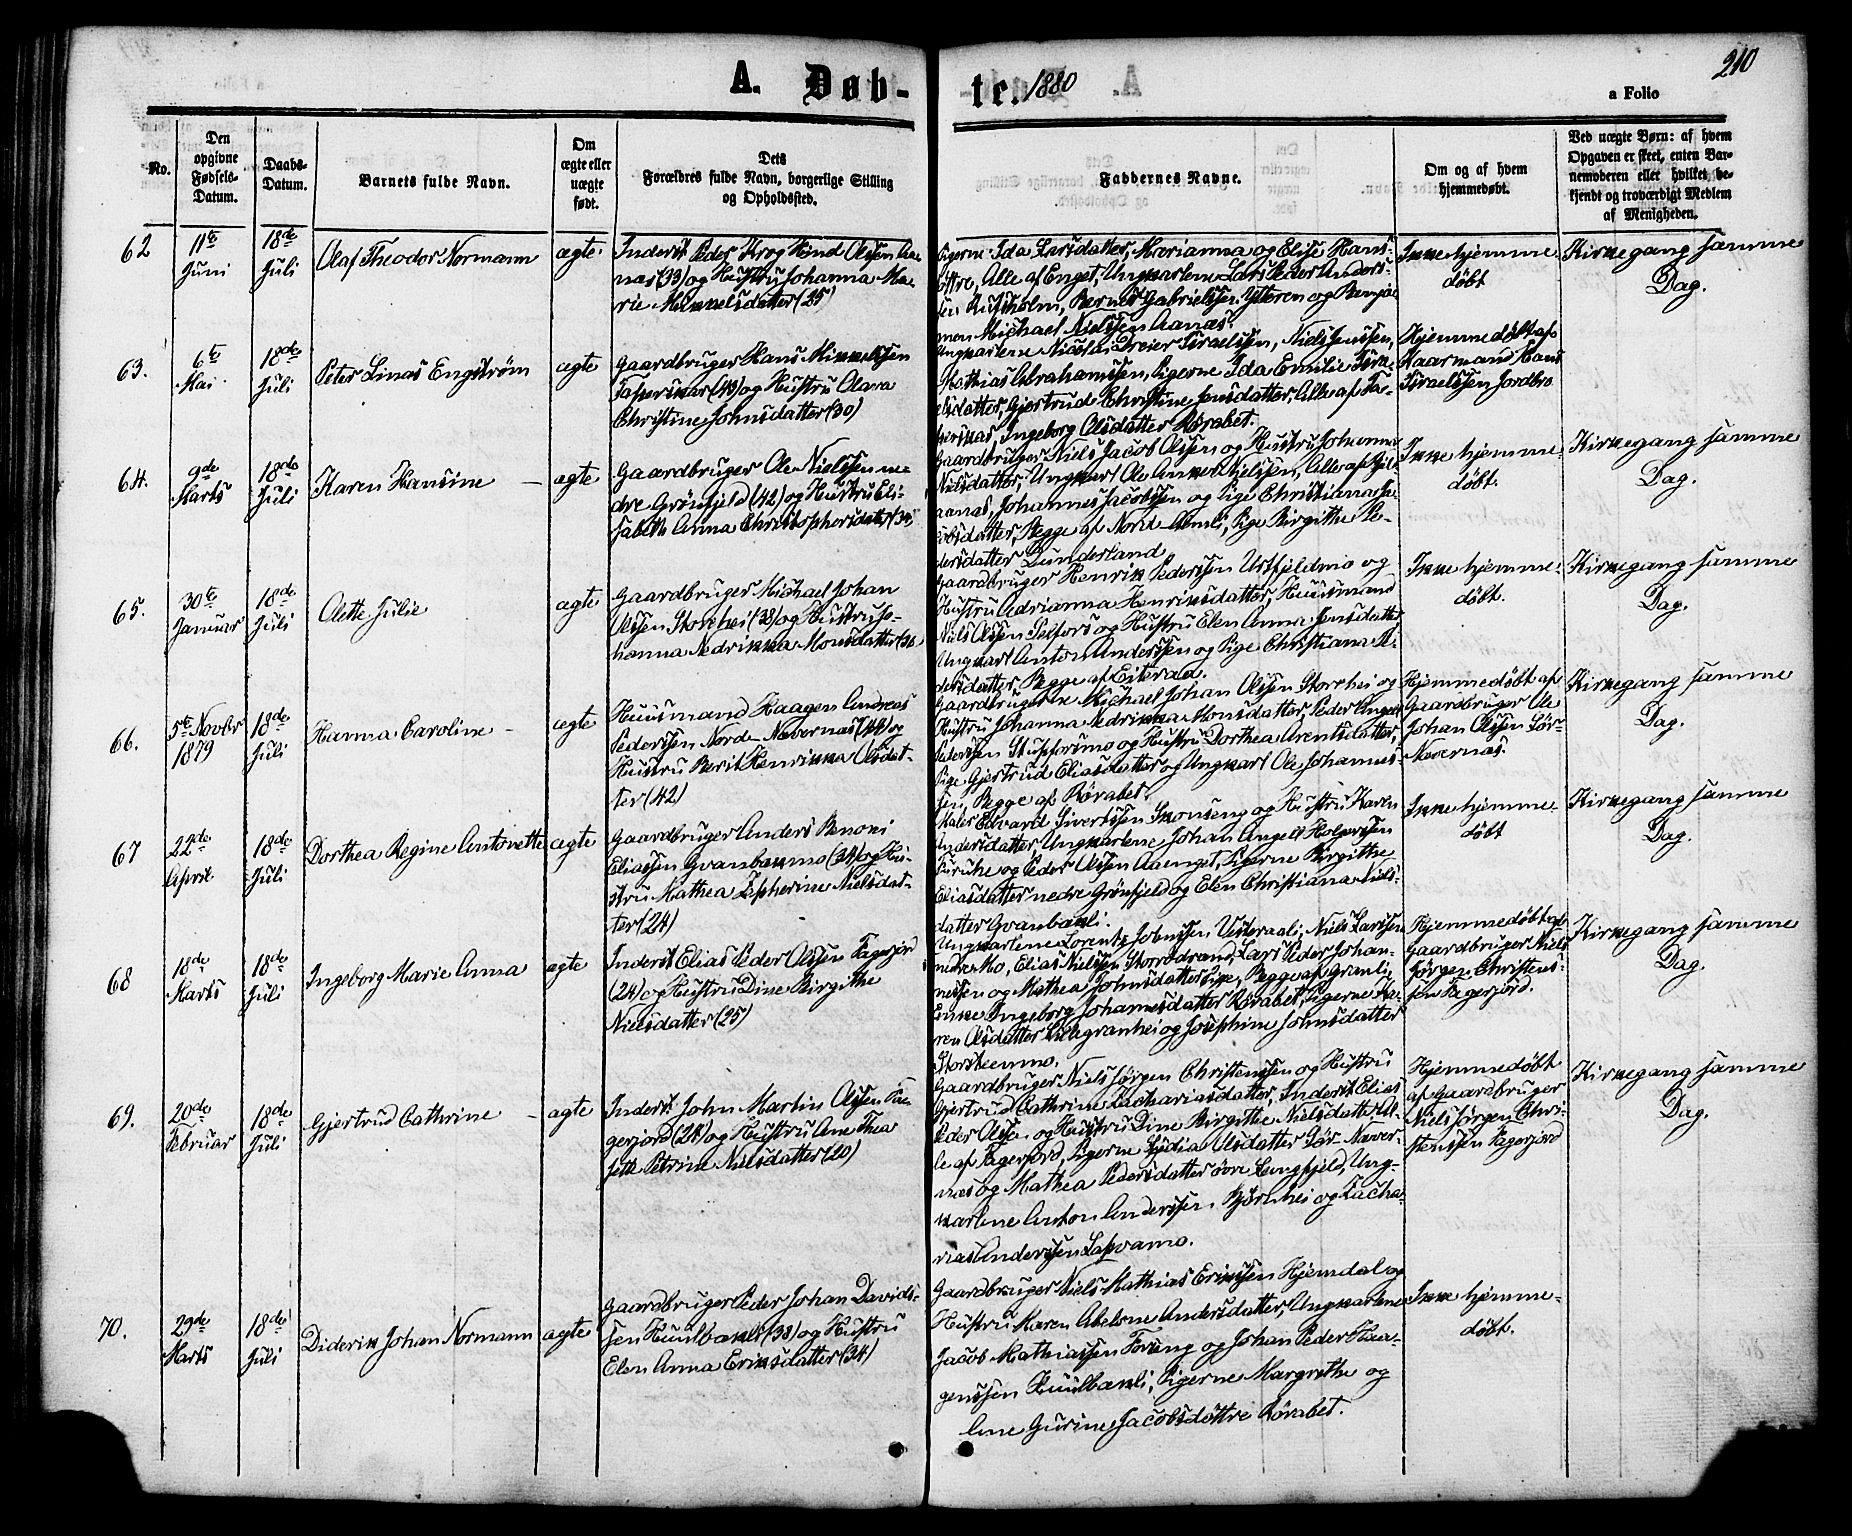 210
A. Døb-
te. 1880
a Folio
No.
Den
opgivne
Fødsels-
Datum.
Daabs-
Datum.
Barnets fulde Navn.
Om
ægte eller
uægte
født.
Dets
Forældres fulde Navn, borgerlige Stilling
og Opholdssted.
Faddernes Navne.
Om og af hvem
hjemmedøbt.
Ved uægte Børn: af hvem
Opgaven er skeet, enten Bar-
nemoderen eller hvilket be-
kjendt og troværdigt Medlem
af Menigheden.
62
11te
Juni
18de
Juli
Olaf Theodor Normann
ægte
Inderst Peder Krog Hind Olssen Aa-
næs (33) og Hustru Johanna Ma-
rie Mikkelsdatter (25)
Pigerne Ida Larsdatter, Marianna og Elise Hans-
døttre, Alle af Enget, Ungkarlene Lars Peder Anders-
sen, Bernes Gabrielssen Ytteren og Benja-
men Michael Nielssen Aanæs.
Ikke hjemme-
døbt
Kirkegang samme
Dag.
63.
6te
Mai
18de
Juli
Peter Linas Engström
ægte
Gaardbruger Hans Mikkelssen
Tapeskar (43) og Hustru Clara
Christine Johnsdatter (30)
Ungkarlene Nicolai Dreier Israelssen, Niels Jenssen,
Mathias Abrahamssen, Pigerne Ida Emilie Isra-
elsdatter, Gjertrud Christine Jensdatter, Alle af Ta-
peskar, Ingeborg Olsdatter Rørabet.
Hjemmedøbt af
Gaardmand Hans
Israelssen Jordbro
64.
9de
Marts
18de
Juli
Karen Hansine
ægte
Gaardbruger Ole Nielssen ne-
dre Grønfjeld (42) og Hustru Eli-
sabeth Anna Christophersdatter
Gaardbruger Niels Jacob Olssen og Hustru Johanna
Nielsdatter, Ungkarl Ole Anker Nielssen, Alle af
Johannes Jacobssen og Pige Christiana Ja-
cobsdatter, Begge af Nord-, Pige Birgitha Pe-
dersdatter Dunderland
Ikke hjemme-
døbt.
Kirkegang samme
Dag.
65.
30te
Januar
18de
Juli
Olette Julie
ægte
Gaardbruger Michael Johan
Olssen Storehei (38) og Hustru Jo-
hanna Nedrikka Monsdatter
Gaardbruger Henrik Pederssen Ursfjeldmo og
Hustru Adrianna Henriksdatter, Huusmand
Niels Olssen Selfors og Hustru Elen Anna Jensdatter
Ungkarl Anton Anderssen og Pige Christiana Pe-
dersdatter, Begge af Eiteraa.
Ikke hjemme-
døbt.
Kirkegang samme
Dag.
66.
5te Novbr
1879
18de
Juli
Hanna Caroline
ægte
Huusmand Haagen Andreas
Pederssen Nord-Nævernæs (44) og
Hustru Berit Henrikka Olsdat-
ter (42)
Gaardbruger Michael Johan Olssen Storehei og
Hustru Johanna Nedrikka Monsdatter, Peder Angell
Pederssen Stupforsmo og Hustru Dorthea Arentsdatter,
Pige Gjertrud Eliasdatter og Ungkarl Ole Johannes-
sen, Begge af Rørabet.
Hjemmedøbt af
Gaardbruger Ole
Johan Olssen Sør-
Nævernæs.
Kirkegang samme
Dag.
67
22de
April
18de
Juli
Dorthea Regine Antonette
ægte
Gaardbruger Anders Benoni
Eliassen Gvanbakmo (24) og Hu-
stru Mathea Zepherine Nielsdat-
ter (24)
Maler Edvard Sivertssen Skonseng og Hustru Karen
Andersdatter, Ungkarlene Johan Angell Holgerssen
Furuhe og Peder Olssen Aaenget, Pigerne Birgithe
Eliasdatter nedre Grønfjeld og Elen Christiana Niels-
datter Gvanbakli.
Ikke hjemme-
døbt
Kirkegang samme
Dag.
68
18de
Marts
18de
Juli
Ingeborg Marie Anna
ægte
Inderst Elias Peder Olssen Fagerjord
(24) og Hustru Dine Birgithe
Nielsdatter (25)
Ungkarlene Lorents Johnssen Vesteraali, Niels Larssen
nedre Mo, Elias Nielssen Storodrand, Lars Peder Johan-
nessen og Mathea Johnsdatter Pige, Begge af Granli,
Enke Ingeborg Johannesdatter Rørabet, Pigerne Ka-
ren Olsdatter Lillegranhei og Josephine Johnsdatter
Storsteenmo.
Hjemmedøbt af
Gaardbruger Niels
Jørgen Christens-
sen Fagerjord.
Kirkegang samme
Dag.
69.
20de
Februar
18de
Juli
Gjertrud Cathrine
ægte
Inderst John Martin Olssen Fa-
gerjord (24) og Hustru Ane Thea
Petrine Nielsdatter (20)
Gaardbruger Niels Jørgen Christenssen og Hustru
Gjertrud Cathrine Zachariasdatter, Inderst Elias
Peder Olssen og Hustru Dine Birgithe Nielsdatter Al-
le af Fagerjord, Pigerne Lydia Olsdatter Sør-Næver-
næs og Mathea Pedersdatter øvre Langfjeld, Ung-
karlene Anton Anderssen Bjørnhei og Zacha-
rias Anderssen Lapvamo.
Hjemmedøbt
af Gaardbruger
Niels Jørgen Chri-
stenssen Fagerjord
Kirkegang samme
Dag.
70.
29de
Marts
18de
Juli
Diderik Johan Normann
ægte
Gaardbruger Peder Johan Davids-
sen Huulbækli (38) og Hustru
Elen Anna Eriksdatter (34)
Gaardbruger Niels Mathias Erikssen Hjemdal og
Hustru Maren Abelone Andersdatter, Ungkarlene
Jacob Mathiassen Forseng og Johan Peder Haa-
genssen Huulbækli, Pigerne Margrethe og
Ane Gurine Jacobsdøttre Rørabet.
Ikke hjemme-
døbt.